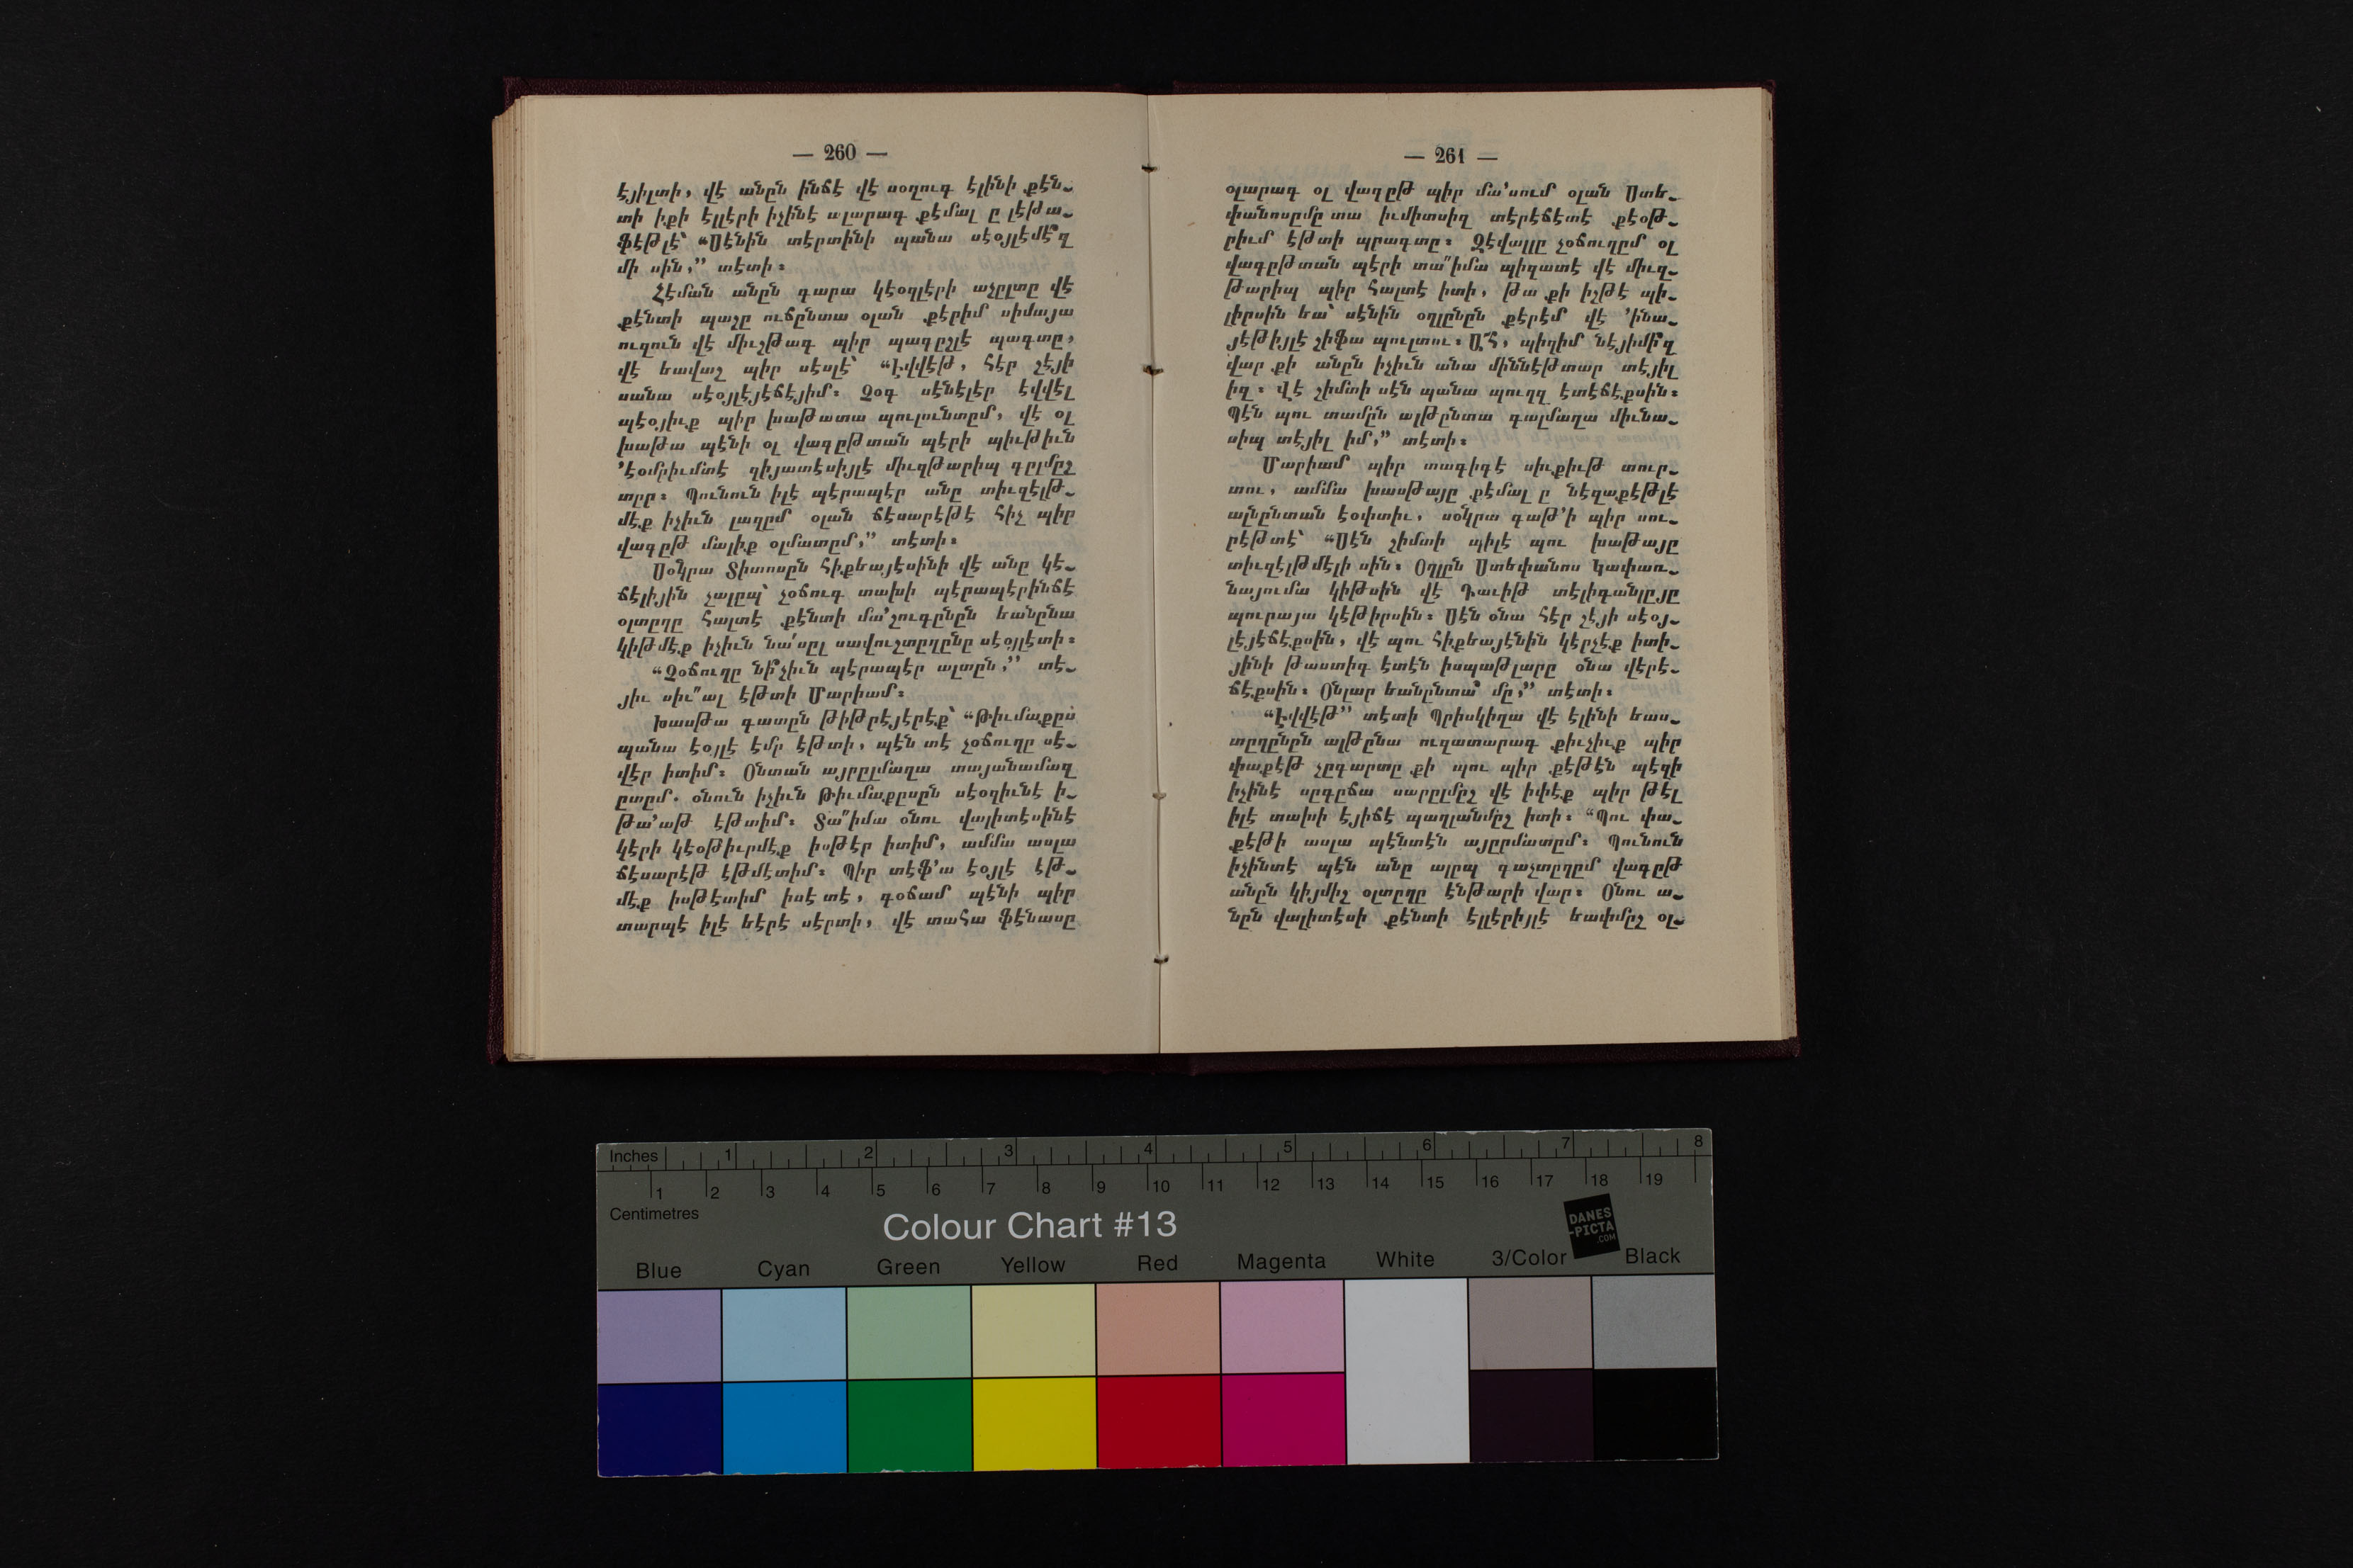 — 260 —
էյիլտի, վէ անըն ինճէ վէ սօղուգ էլինի քէն֊
տի իքի էլլէրի իչինէ ալարագ քէմալ ը լէթա֊
ֆէթլէ՝ “Սէնին տէրտինի պանա սէօյլէմէ՞զ
մի սին,” տէտի։
Հէման անըն գարա կէօզլէրի աչըլտը վէ
քէնտի պաշը ուճընտա օլան քէրիմ սիմայա
ուզուն վէ միւշթագ պիր պագըշլէ պագտը,
վէ եավաշ պիր սէսլէ՝ “Էվվէթ, հէր շէյի
սանա սէօյլէյէճէյիմ։ Չօգ սէնէլէր էվվէլ
պէօյիւք պիր խաթատա պուլունտըմ, վէ օլ
խաթա պէնի օլ վագըթտան պէրի պիւթիւն
’էօմրիւմտէ զիյատէսիյլէ միւզթարիպ գըլմըշ
տըր։ Պունուն իլէ պէրապէր անը տիւզէլթ֊
մէք իչիւն լազըմ օլան ճէսարէթէ հիչ պիր
վագըթ մալիք օլմատըմ,” տէտի։
Սօնկրա Տիտոսըն հիքեայէսինի վէ անը կէ֊
ճէլիյին չալըպ՝ չօճուգ տախի պէրապէրինճէ
օլտըղը հալտէ քէնտի մա’շուգընըն եանընա
կիթմէք իչիւն նա՛սըլ սավուշտըղընը սէօյլէտի։
“Չօճուղը նի՞չիւն պէրապէր ալտըն,” տէ֊
յիւ սիւ՞ալ էթտի Մարիամ։
Խասթա գատըն թիթրէյէրէք՝ “Թիւմաքըս
պանա էօյլէ էմր էթտի, պէն տէ չօճուղը սէ֊
վէր իտիմ։ Օնտան այրըլմաղա տայանամազ
ըտըմ. օնուն իչիւն Թիւմաքըսըն սէօզիւնէ ի֊
թա’աթ էթտիմ։ Տա՞իմա օնու վալիտէսինէ
կէրի կէօթիւրմէք իսթէր իտիմ, ամմա ասլա
ճէսարէթ էթմէտիմ։ Պիր տէֆ’ա էօյլէ էթ֊
մէք իսթէտիմ իսէ տէ, գօճամ պէնի պիր
տարպէ իլէ եէրէ սէրտի, վէ տահա ֆէնասը
— 261 —
օլարագ օլ վագըթ պիր մա’սում օլան Ստե֊
փանոսըմը տա իւմիտսիզ տէրէճէտէ քէօթ֊
րիւմ էթտի պրագտը։ Զէվալլը չօճուղըմ օլ
վագըթտան պէրի տա՞իմա պիզատէ վէ միւզ֊
թարիպ պիր հալտէ իտի, թա քի իշթէ պի֊
լիրսին եա՝ սէնին օղլընըն քէրէմ վէ ’ինա֊
յէթիյլէ շիֆա պուլտու։ Ա՜հ, պիզիմ նէյիմի՞զ
վար քի անըն իչիւն անա միննէթտար տէյիլ
իզ։ Վէ շիմտի սէն պանա պուղզ էտէճէքսին։
Պէն պու տամըն ալթընտա գալմաղա միւնա֊
սիպ տէյիլ իմ,” տէտի։
Մարիամ պիր տագիգէ սիւքիւթ տուր֊
տու, ամմա խասթայը քէմալ ը նէզաքէթլէ
ալնընտան էօփտիւ, սօնկրա գաթ’ի պիր սու֊
րէթտէ՝ “Սէն շիմտի պիլէ պու խաթայը
տիւզէլթմէլի սին։ Օղլըն Ստեփանոս Կափառ֊
նայումա կիթսին վէ Դաւիթ տէլիգանլըյը
պուրայա կէթիրսին։ Սէն օնա հէր շէյի սէօյ֊
լէյէճէքսին, վէ պու հիքեայէնին կէրչէք իտի֊
յինի թաստիգ էտէն իսպաթլարը օնա վէրէ֊
ճէքսին։ Օնլար եանընտա՞ մը,” տէտի։
“Էվվէթ” տէտի Պրիսկիղա վէ էլինի եաս֊
տըղընըն ալթընա ուզատարագ քիւչիւք պիր
փաքէթ չըգարտը քի պու պիր քէթէն պէզի
իչինէ սըգըճա սարըլմըշ վէ իփէք պիր թէլ
իլէ տախի էյիճէ պաղլանմըշ իտի։ “Պու փա֊
քէթի ասլա պէնտէն այըրմատըմ։ Պունուն
իչինտէ պէն անը ալըպ գաչտըղըմ վագըթ
անըն կիյմիշ օլտըղը էնթարի վար։ Օնու ա֊
նըն վալիտէսի քէնտի էլլէրիյլէ եափմըշ օլ֊
Inches 1 2 3 4 5 6 7 8
1 2 3 4 5 6 7 8 9 10 11 12 13 14 15 16 17 18 19
Centimetres
Colour Chart #13
DANES
-PICTA
.COM
Blue Cyan Green Yellow Red Magenta White 3/Color Black